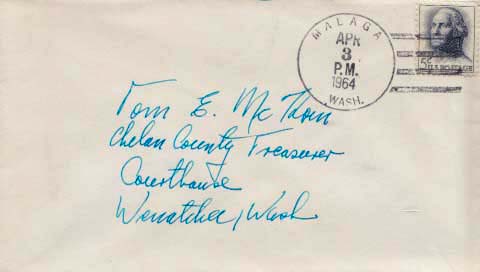 MALAGA
APR
3
P.M.
1964
WASH.
5¢
U.S. POSTAGE
Tom E. McThorn
Chelan County Treasurer
Courthouse
Wenatchee, Wash